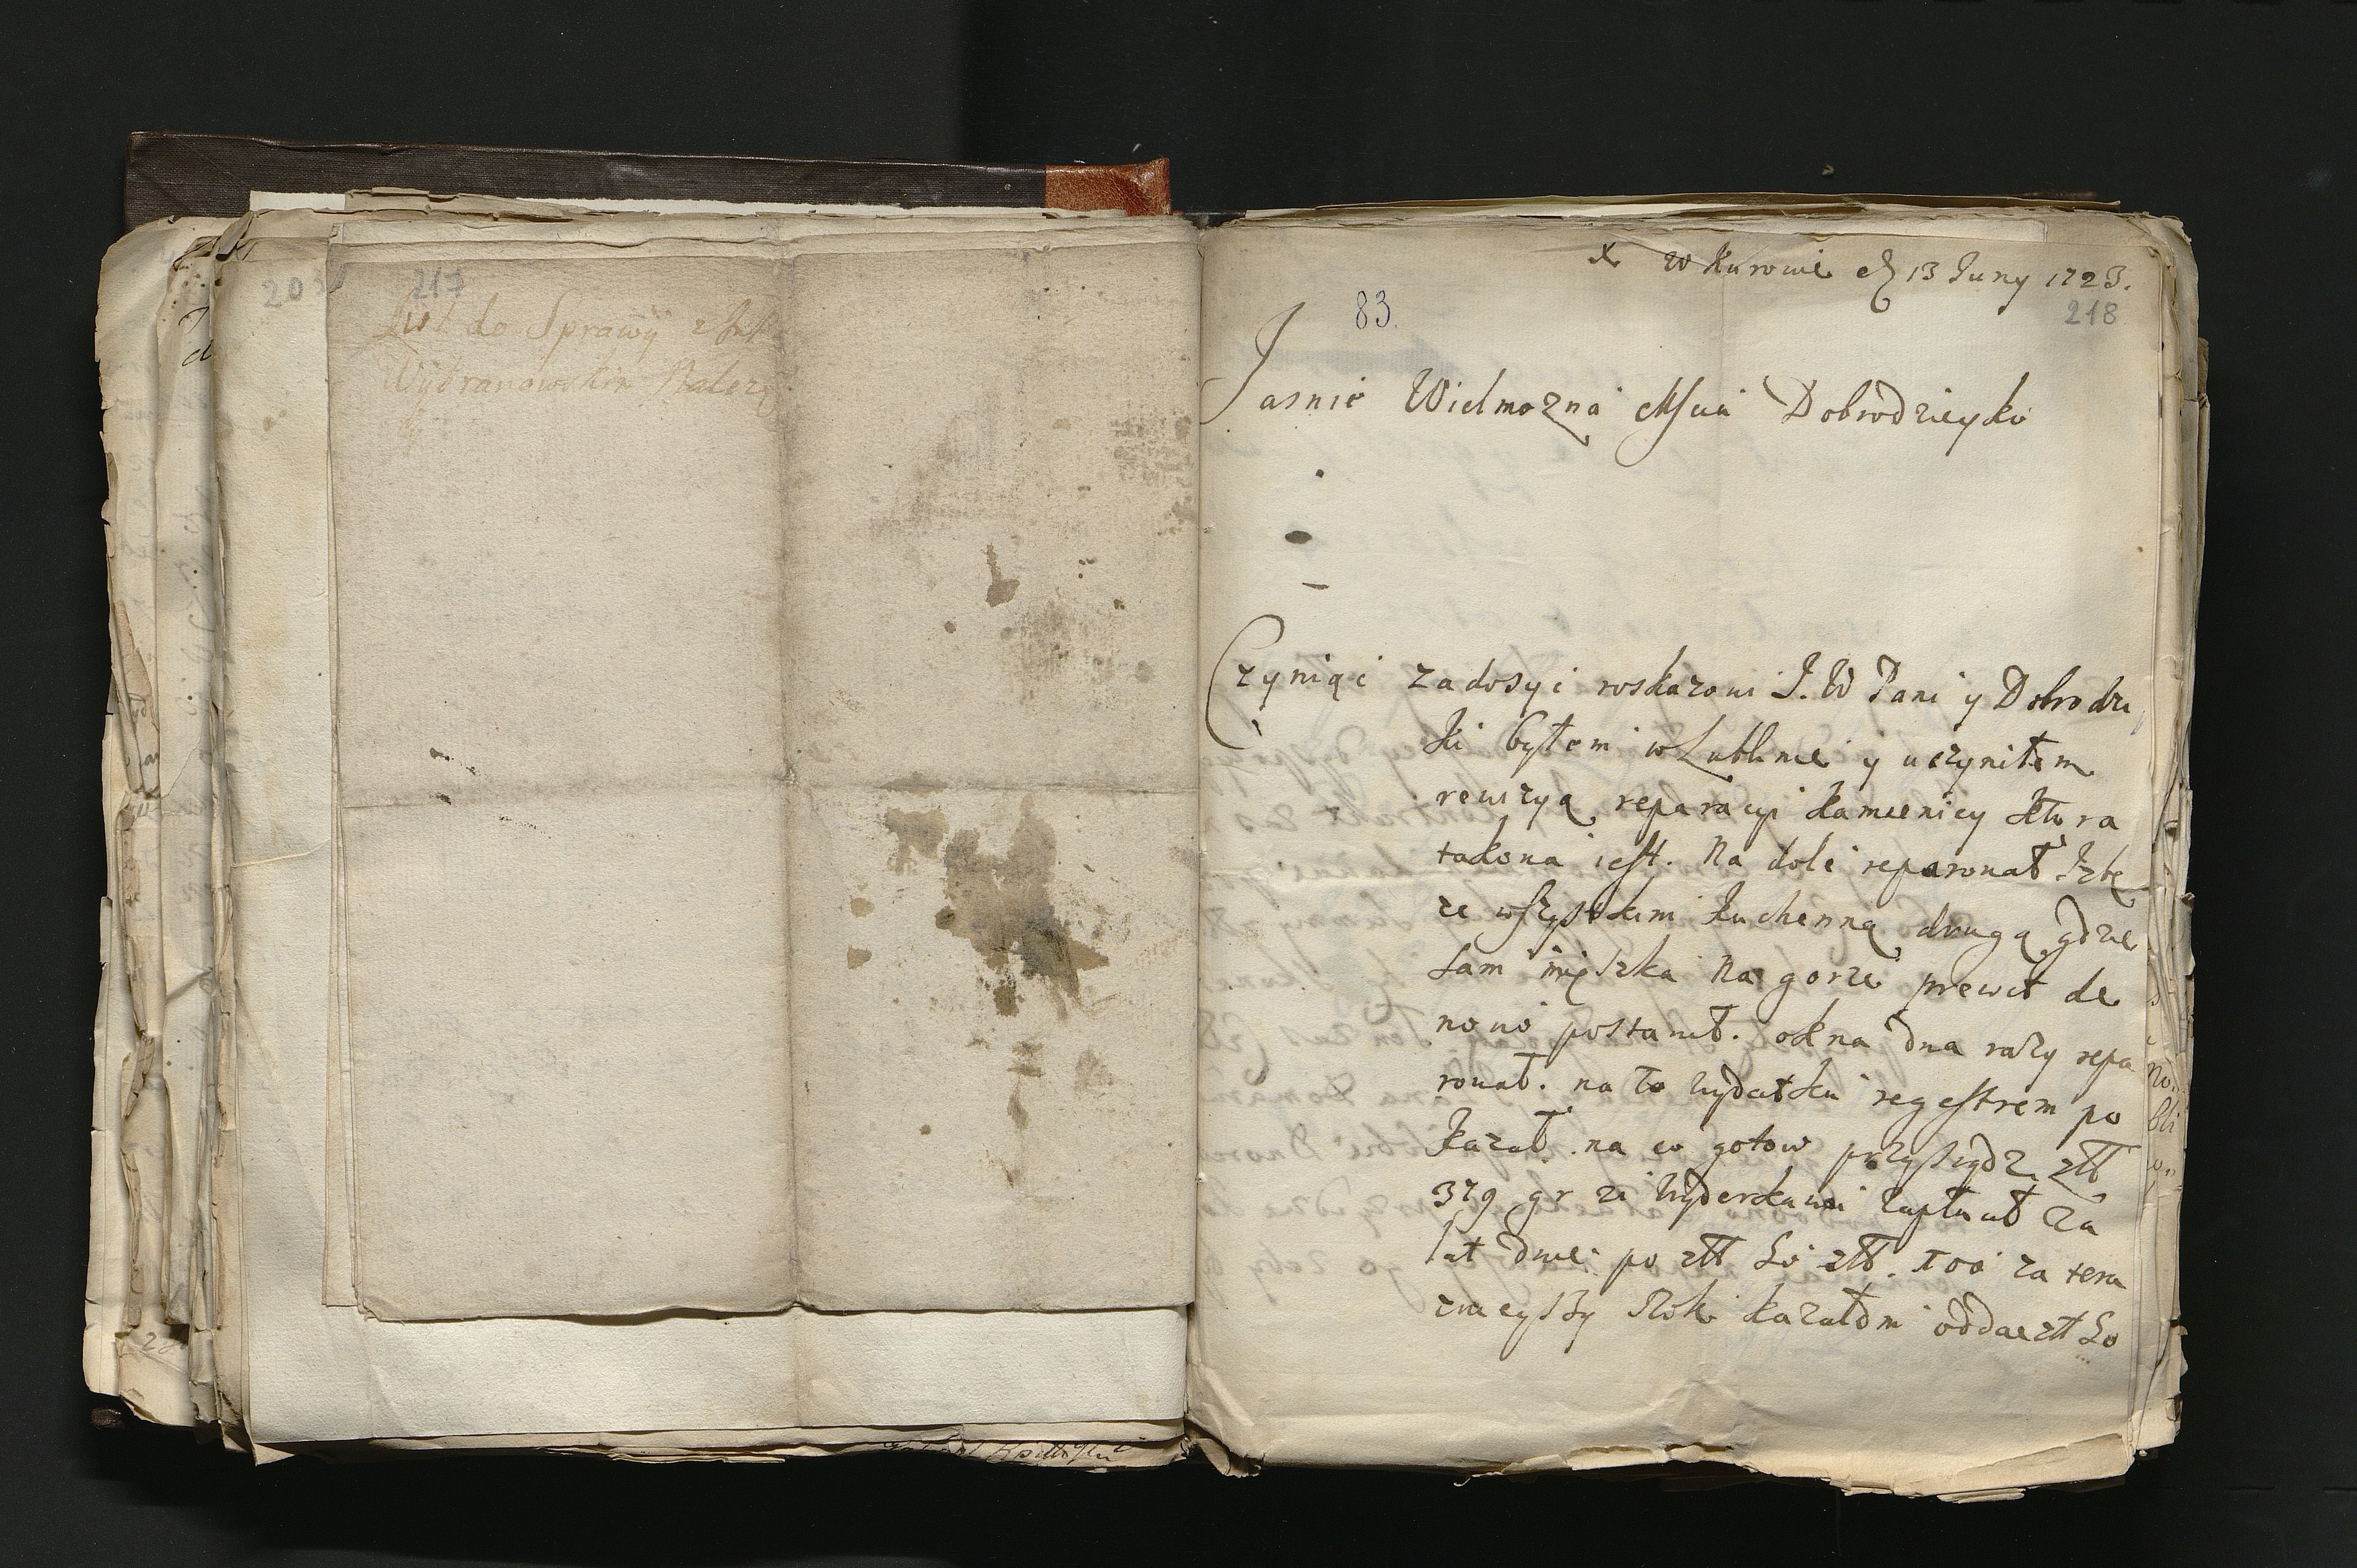 203
217
List do Sprawÿ z Jmp
Wÿbranowskim Należ
x w Kurowie d 13 Juny 1723.
218
83.
Jasnie Wielmozna Mscia Dobrodzieyko
Czyniąc zadosyc roskazowi J. W Pani y Dobrodzi
ki byłem w Lublinie y uczyniłem
rewizyą reparacyi kamienicy ktora
takowa iest. Na dole reparował Izbę
ze wszystkim kuchenną drugą gdzie
sam mięszka Na gorze prewet de
nowo postawił. okna dwa razy repa
rował. na to wydatku regestrem po
kazał. na co gotow przysiądz złł
379 gr zi hyderkawi zapłacił za
lat dwie po złł so złł. 100 za tera
znieyszy Rok kazałem oddac złł so